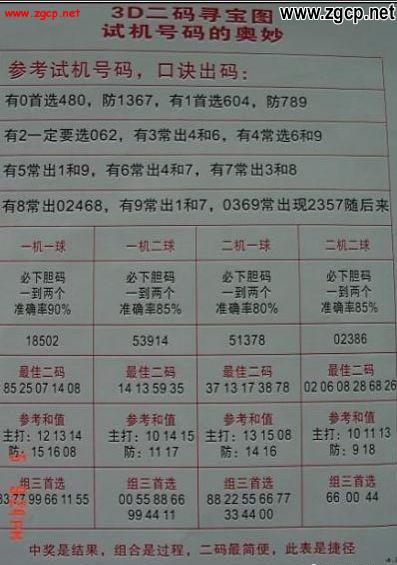 www.zgcp.net
www.zgcp.net
3D二码寻宝图
试机号码的奥妙
参考试机号码，口诀出码：
有0首选480，防1367，有1首选604，防789
有2一定要选062，有3常出4和6，有4常选6和9
有5常出1和9，有6常出4和7，有7常出3和8
有8常出02468，有9常出1和7，0369常出现2357随后来
一机一球 一机二球 二机一球 二机二球
必下胆码 必下胆码 必下胆码 必下胆码
一到两个 一到两个 一到两个 一到两个
准确率90% 准确率85% 准确率80% 准确率85%
18502 53914 51378 02386
最佳二码 最佳二码 最佳二码 最佳二码
85 25 07 14 08 14 13 59 35 37 13 17 38 78 02 06 08 28 68 26
参考和值 参考和值 参考和值 参考和值
主打：12 13 14 主打：10 14 15 主打：13 15 08 主打：10 11 13
防：15 16 08 防：11 17 防：14 16 防：9 18
组三首选 组三首选 组三首选 组三首选
33 77 99 66 11 55 00 55 88 66 88 22 55 66 77 66 00 44
99 44 11 33 44 00
中奖是结果，组合是过程，二码最简便，此表是捷径